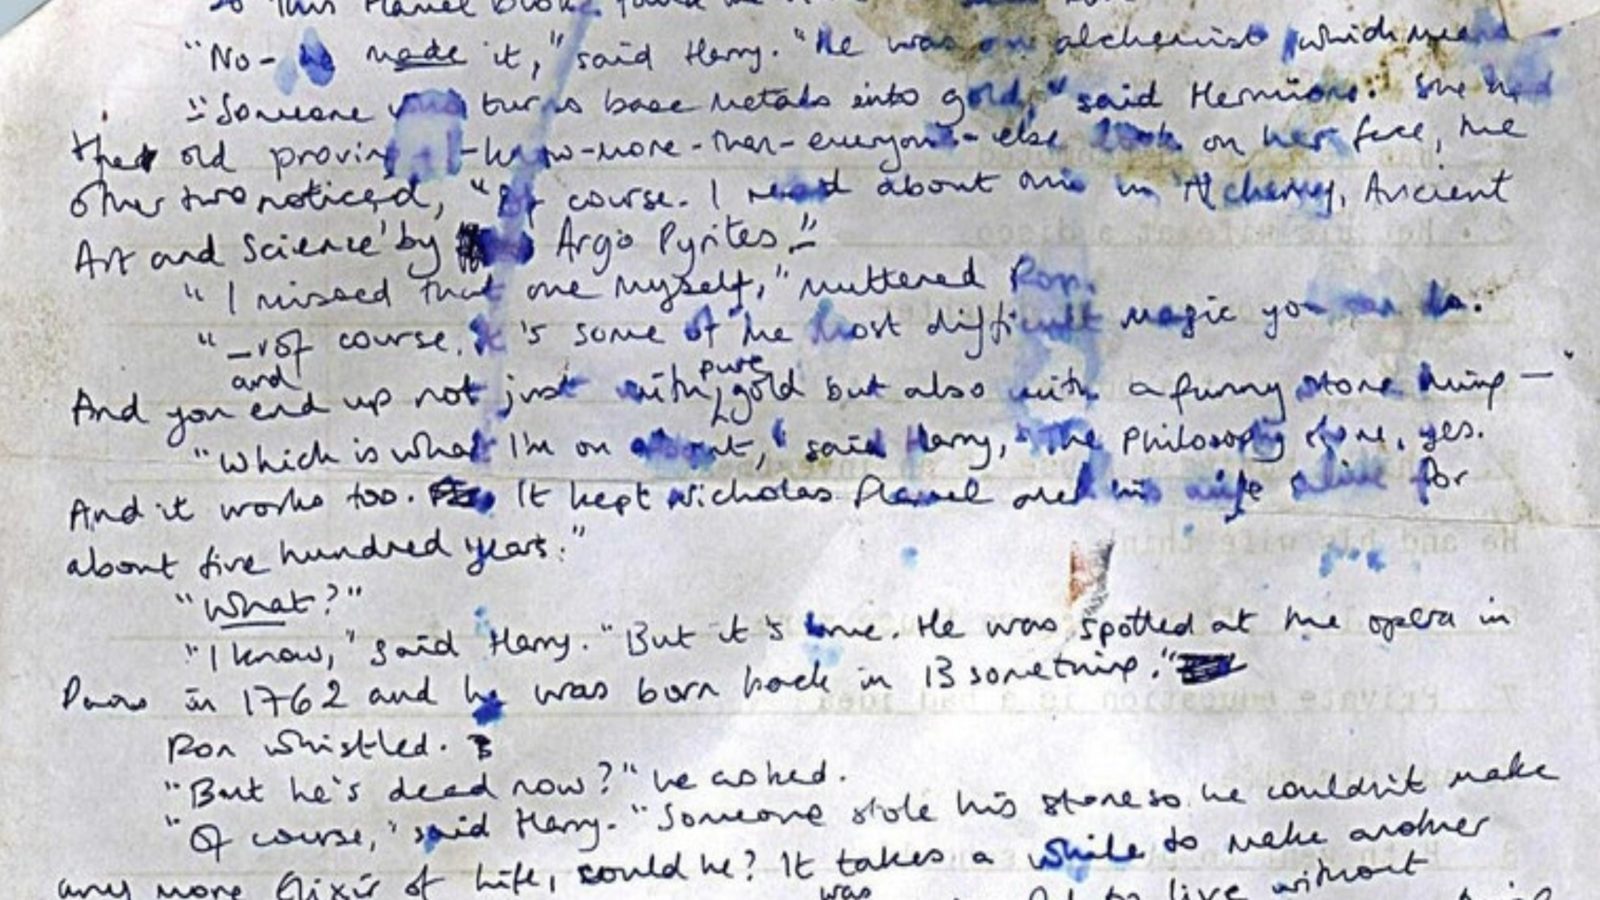 So this Flamel bloke found
"No - he made it," said Harry. "He was an alchemist, which means
"Someone who turns base metals into gold," said Hermione. She had
that old proving-I-know-more-than-everyone-else look on her face, the
other two noticed, "Of course. I read about one in 'Alchemy, Ancient
Art and Science' by Argo Pyrites."
"I missed that one myself," muttered Ron.
"- of course, it's some of the most difficult magic you can do.
and pure
And you end up not just with gold but also with a funny stone thing -"
"Which is what I'm on about," said Harry, "the Philosophy stone, yes.
And it works too. It kept Nicholas Flamel and his wife alive for
about five hundred years."
"What?"
"I know," said Harry. "But it's true. He was spotted at the opera in
Paris in 1762 and he was born back in 13 something."
Ron whistled.
"But he's dead now?" he asked.
"Of course," said Harry. "Someone stole his stone so he couldn't make
any more Elixir of Life, could he? It takes a while to make another
was to live without